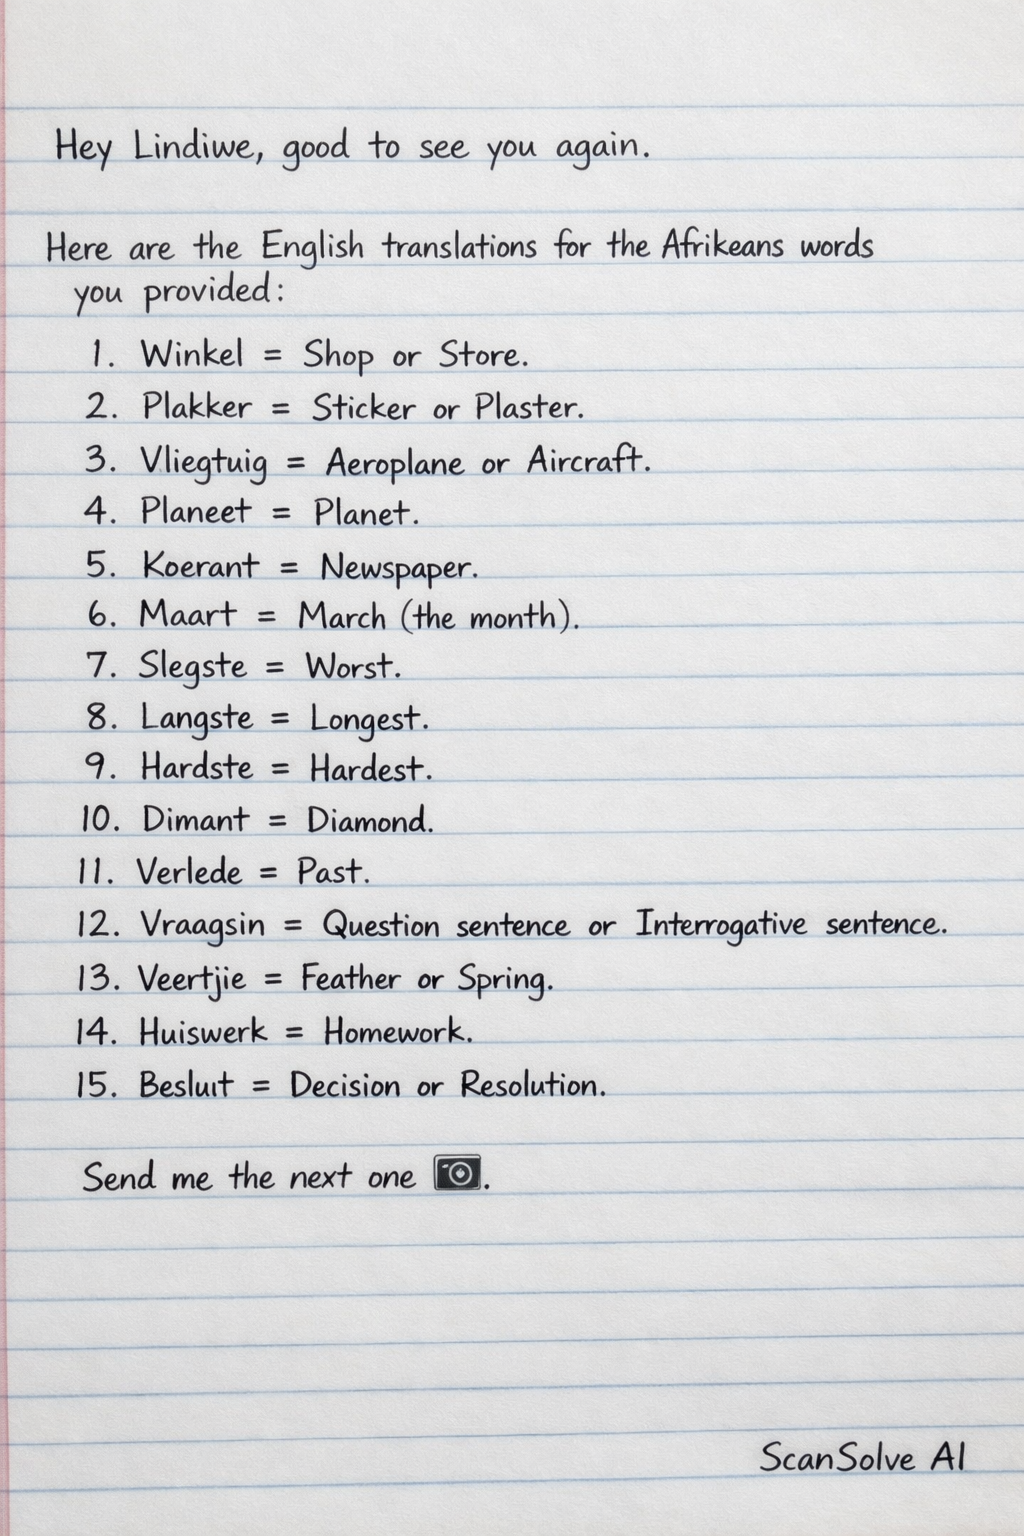 Hey Lindiwe, good to see you again.
Here are the English translations for the Afrikeans words
you provided:
1. Winkel = Shop or Store.
2. Plakker = Sticker or Plaster.
3. Vliegtuig = Aeroplane or Aircraft.
4. Planeet = Planet.
5. Koerant = Newspaper.
6. Maart = March (the month).
7. Slegste = Worst.
8. Langste = Longest.
9. Hardste = Hardest.
10. Dimant = Diamond.
11. Verlede = Past.
12. Vraagsin = Question sentence or Interrogative sentence.
13. Veertjie = Feather or Spring.
14. Huiswerk = Homework.
15. Besluit = Decision or Resolution.
Send me the next one 📷.
ScanSolve AI